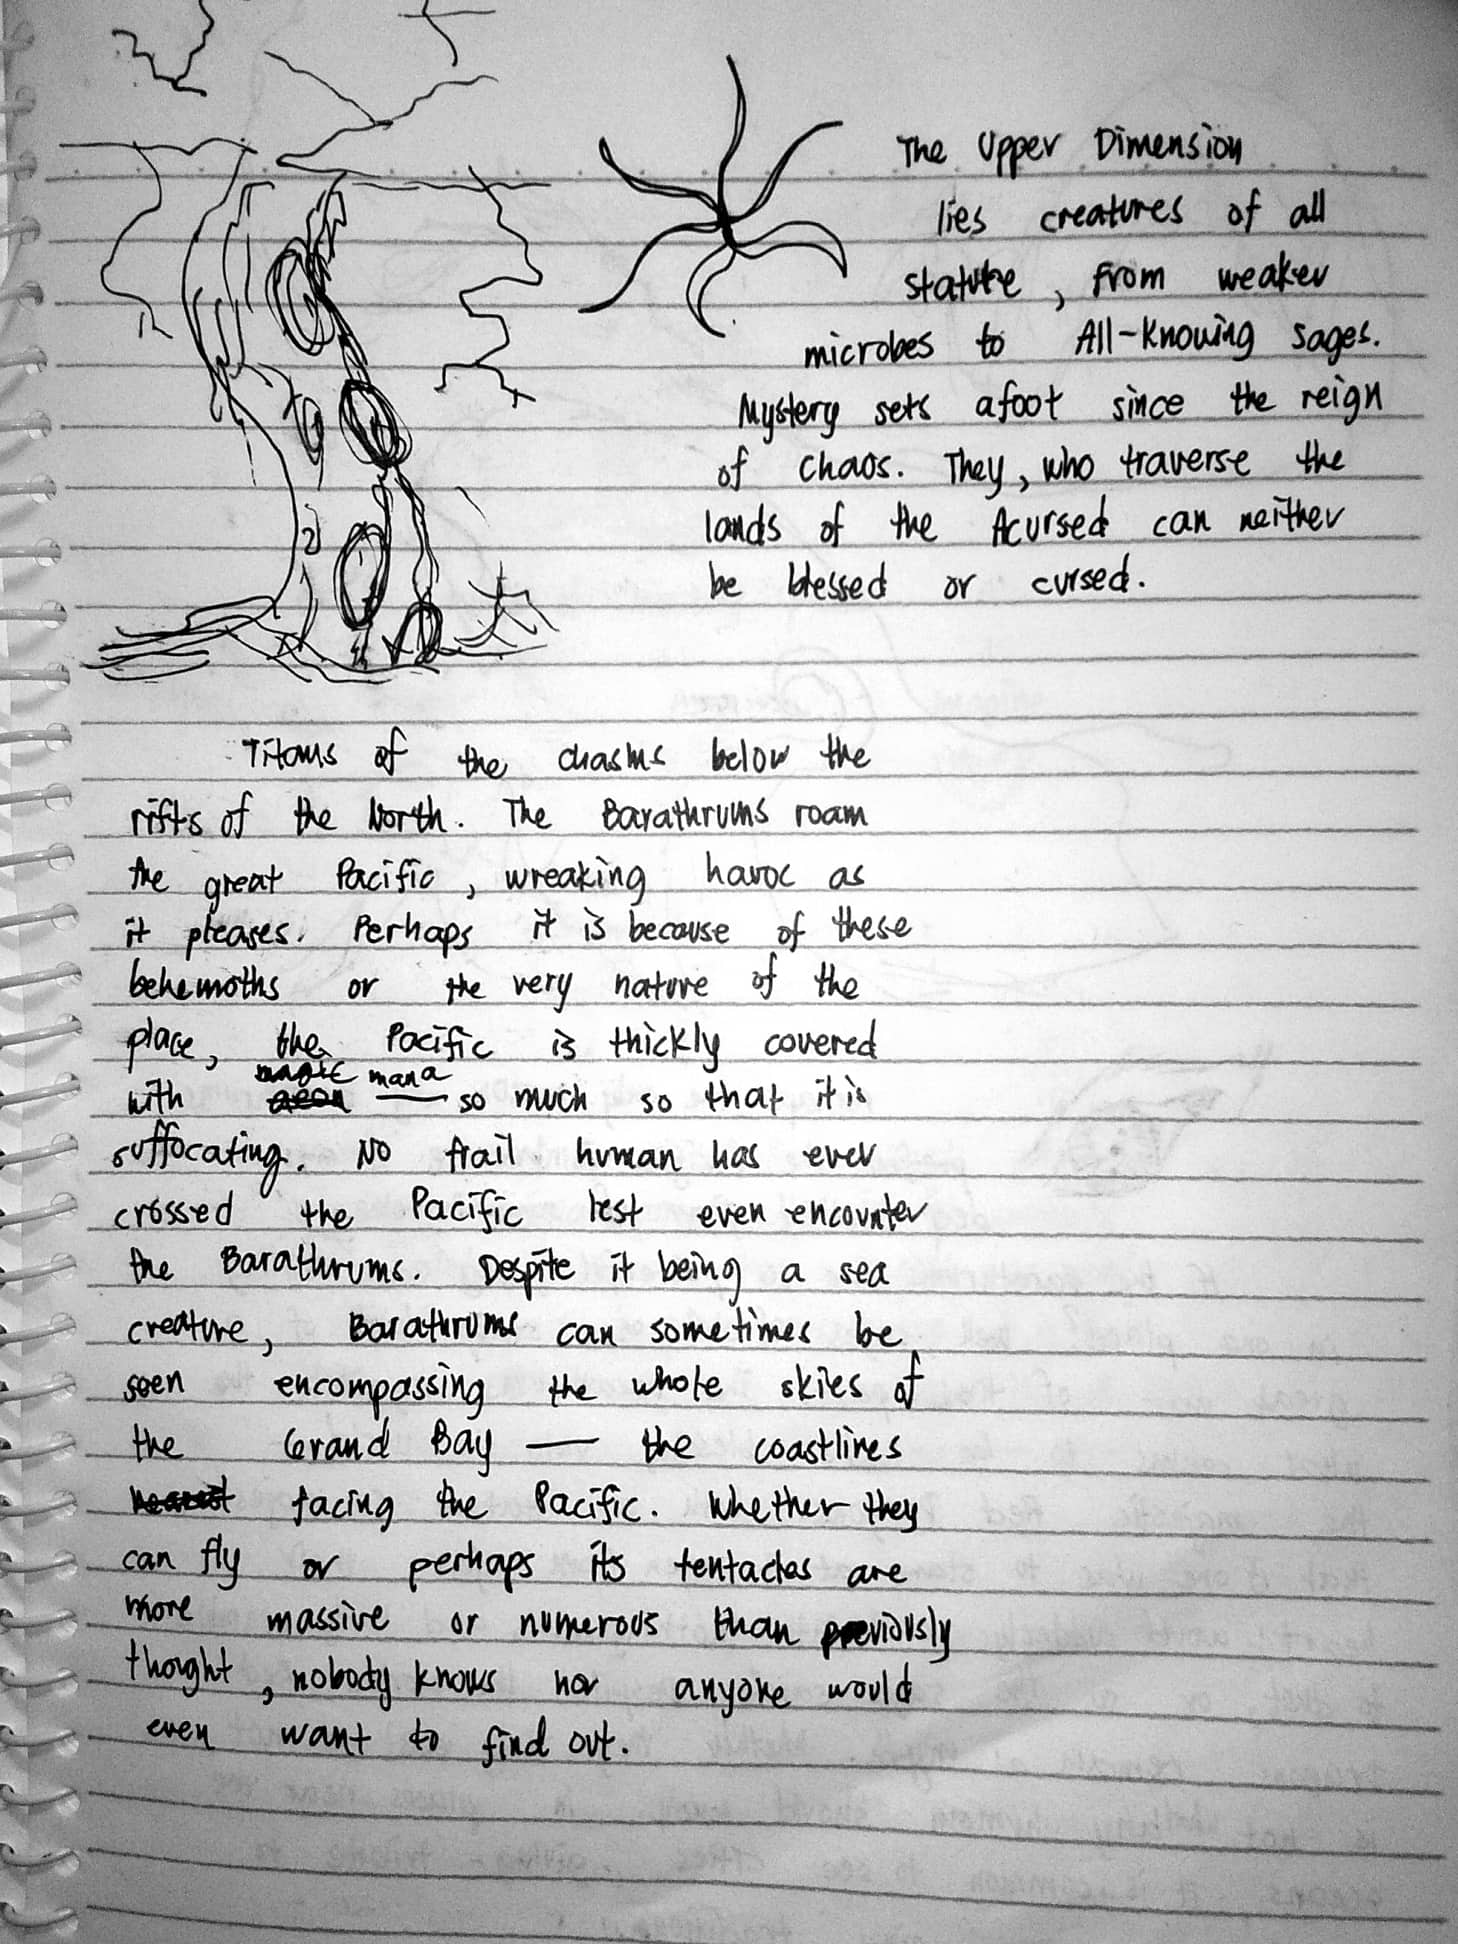 The Upper Dimension
lies creatures of all
statute, from weaker
microbes to All-Knowing sages.
Mystery sets afoot since the reign
of chaos. They, who traverse the
lands of the Acursed can neither
be blessed or cursed.
Titans of the chasms below the
rifts of the North. The Barathrums roam
the great Pacific, wreaking havoc as
it pleases. Perhaps it is because of these
behemoths or the very nature of the
place, the Pacific is thickly covered
magic mana
with aeon — so much so that it is
suffocating. No frail human has ever
crossed the Pacific lest even encounter
the Barathrums. Despite it being a sea
creature, Barathrums can sometimes be
seen encompassing the whole skies of
the Grand Bay — the coastlines
nearest facing the Pacific. Whether they
can fly or perhaps its tentacles are
more massive or numerous than previously
thought, nobody knows nor anyone would
even want to find out.